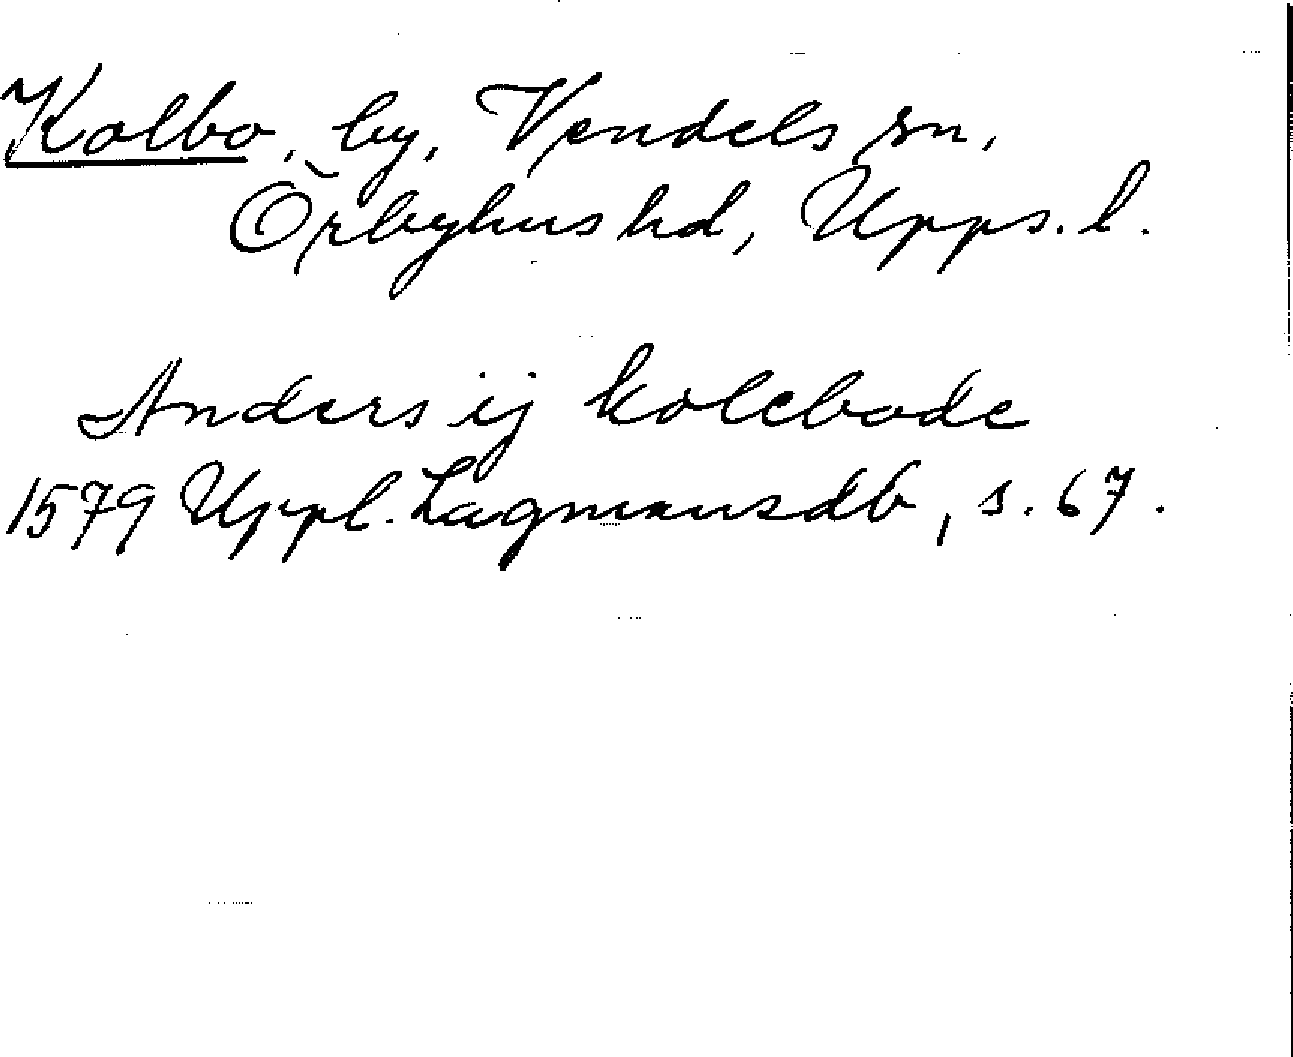 Kolbo, by, Vendels sn,
Örbyhus hd, Upps. l.
Anders ij kolebode
1579 Uppl. Lagmansdb, s. 67.